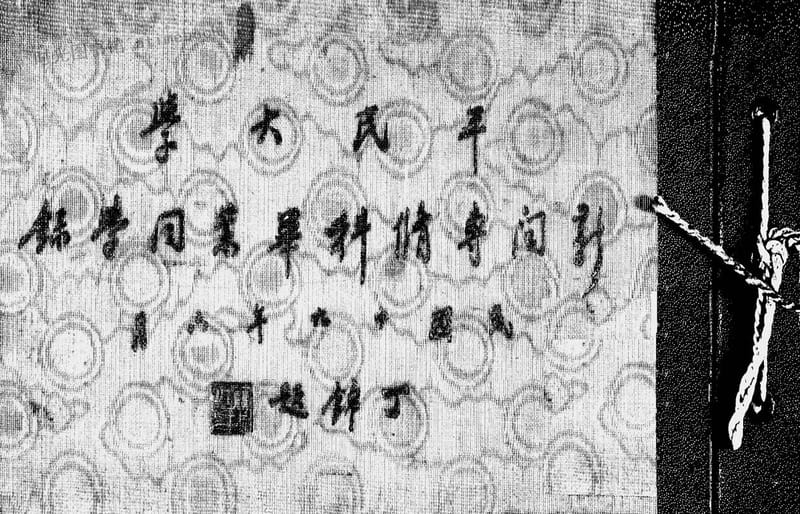 平民大學
新聞專修科畢業同學錄
民國十九年六月
丁錦題